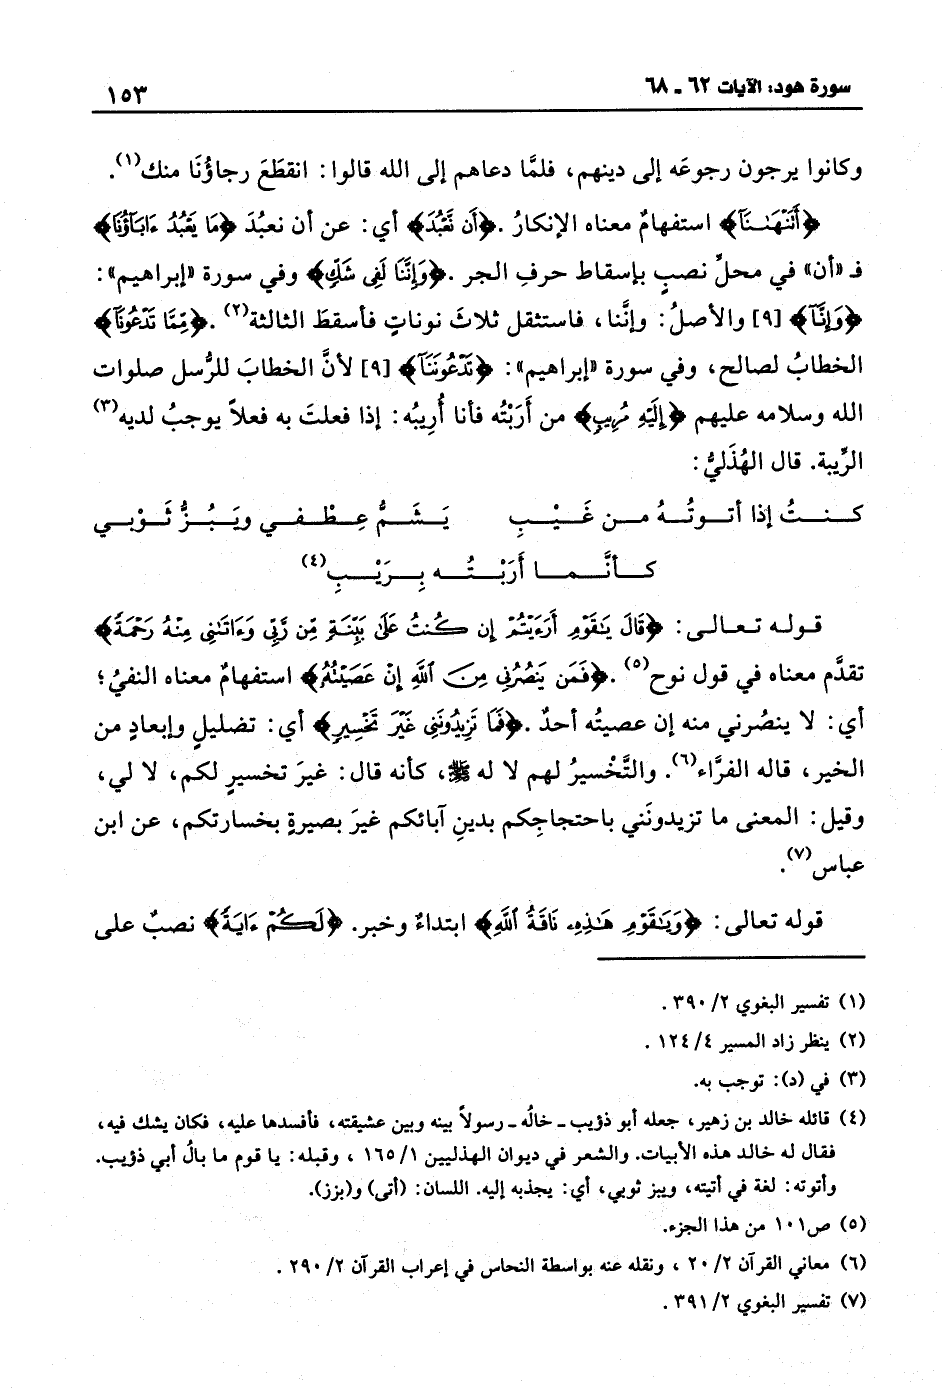 سورة هود: الآيات ٦٢ ـ ٦٨
١٥٣
وكانوا يرجون رجوعَه إلى دينهم، فلمَّا دعاهم إلى الله قالوا: انقطَعَ رجاؤُنَا منك(١).
﴿أَتَنْهَىٰنَآ﴾ استفهامٌ معناه الإنكارُ. ﴿أَن نَّعْبُدَ﴾ أي: عن أن نعبُدَ ﴿مَا يَعْبُدُ ءَابَآؤُنَا﴾
فـ «أن» في محلِّ نصبٍ بإسقاط حرفِ الجر. ﴿وَإِنَّنَا لَفِى شَكٍّ﴾ وفي سورة «إبراهيم»:
﴿وَإِنَّآ﴾ [٩] والأصلُ: وإنَّنا، فاستثقل ثلاثَ نوناتٍ فأسقطَ الثالثة(٢). ﴿مِّمَّا تَدْعُونَآ﴾
الخطابُ لصالح، وفي سورة «إبراهيم»: ﴿تَدْعُونَنَآ﴾ [٩] لأنَّ الخطابَ للرُّسل صلوات
الله وسلامه عليهم ﴿إِلَيْهِ مُرِيبٍ﴾ من أَرَبْتُه فأنا أُرِيبُه: إذا فعلتَ به فعلاً يوجبُ لديه(٣)
الرِّيبة. قال الهُذَليُّ:
كنتُ إذا أتوتُهُ من غَيْبِ يَشَمُّ عِطْفي ويَبُزُّ ثَوْبي
كأنَّما أَرَبْتُه بِرَيْبِ(٤)
قوله تعالى: ﴿قَالَ يَٰقَوْمِ أَرَءَيْتُمْ إِن كُنتُ عَلَىٰ بَيِّنَةٍ مِّن رَّبِّى وَءَاتَىٰنِى مِنْهُ رَحْمَةً﴾
تقدَّم معناه في قول نوح(٥). ﴿فَمَن يَنصُرُنِى مِنَ ٱللَّهِ إِنْ عَصَيْتُهُۥ﴾ استفهامٌ معناه النفيُ؛
أي: لا ينصُرني منه إن عصيتُه أحدٌ. ﴿فَمَا تَزِيدُونَنِى غَيْرَ تَخْسِيرٍ﴾ أي: تضليلٍ وإبعادٍ من
الخير، قاله الفرَّاء(٦). والتَّخْسيرُ لهم لا له ﷺ، كأنه قال: غيرَ تخسيرٍ لكم، لا لي،
وقيل: المعنى ما تزيدونَني باحتجاجِكم بدينِ آبائكم غيرَ بصيرةٍ بخسارتكم، عن ابن
عباس(٧).
قوله تعالى: ﴿وَيَٰقَوْمِ هَٰذِهِۦ نَاقَةُ ٱللَّهِ﴾ ابتداءٌ وخبر. ﴿لَكُمْ ءَايَةً﴾ نصبٌ على
(١) تفسير البغوي ٢/ ٣٩٠ .
(٢) ينظر زاد المسير ٤/ ١٢٤ .
(٣) في (د): توجب به.
(٤) قائله خالد بن زهير، جعله أبو ذؤيب ـ خالُه ـ رسولاً بينه وبين عشيقته، فأفسدها عليه، فكان يشك فيه،
فقال له خالد هذه الأبيات. والشعر في ديوان الهذليين ١/ ١٦٥ ، وقبله: يا قوم ما بالُ أبي ذؤيب.
وأتوته: لغة في أتيته، ويبز ثوبي، أي: يجذبه إليه. اللسان: (أتى) و(بزز).
(٥) ص١٠١ من هذا الجزء.
(٦) معاني القرآن ٢/ ٢٠ ، ونقله عنه بواسطة النحاس في إعراب القرآن ٢/ ٢٩٠ .
(٧) تفسير البغوي ٢/ ٣٩١ .